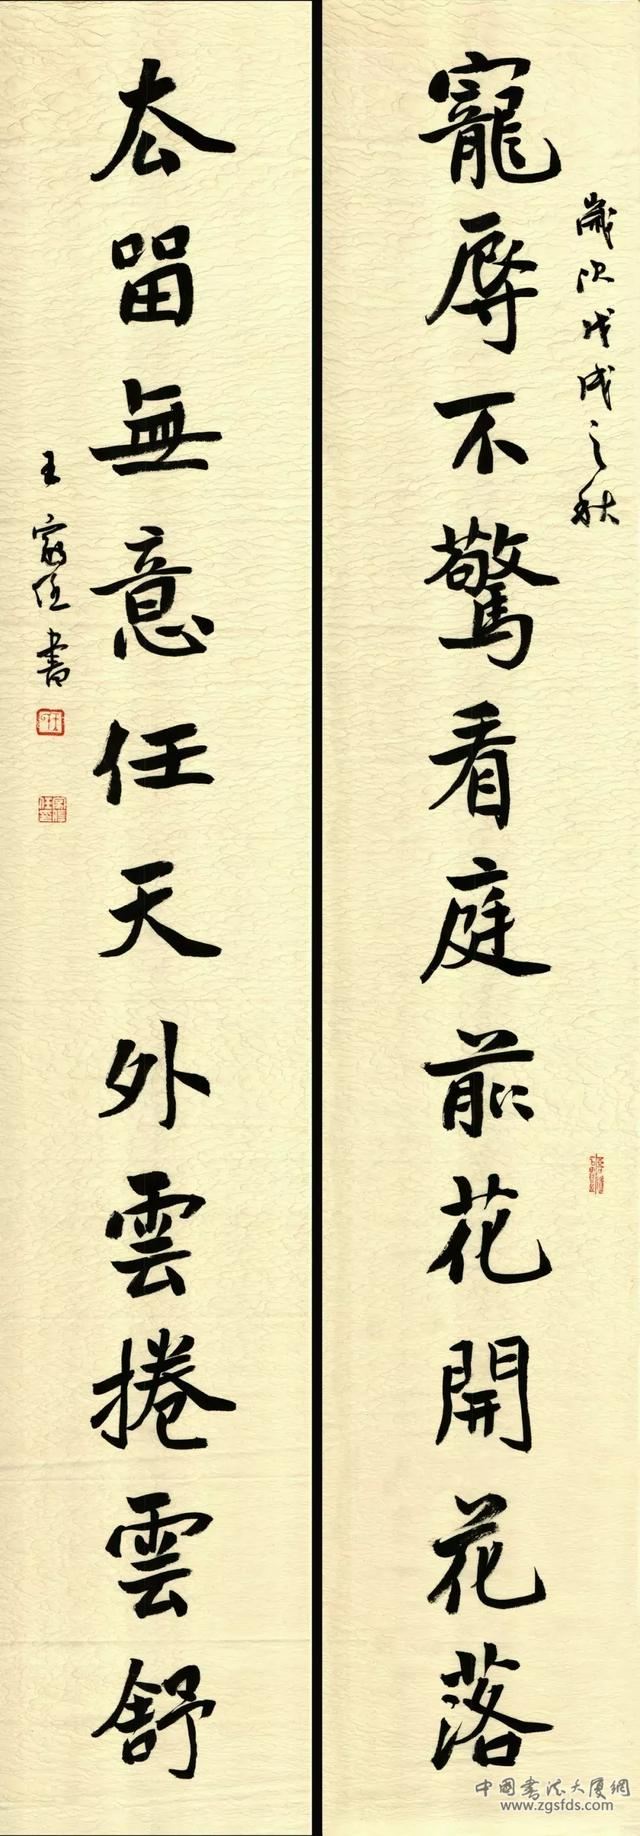 歲次戊戌之秋
寵辱不驚看庭前花開花落
去留無意任天外雲捲雲舒
王
書
中国书法大厦网
www.zgsfds.com